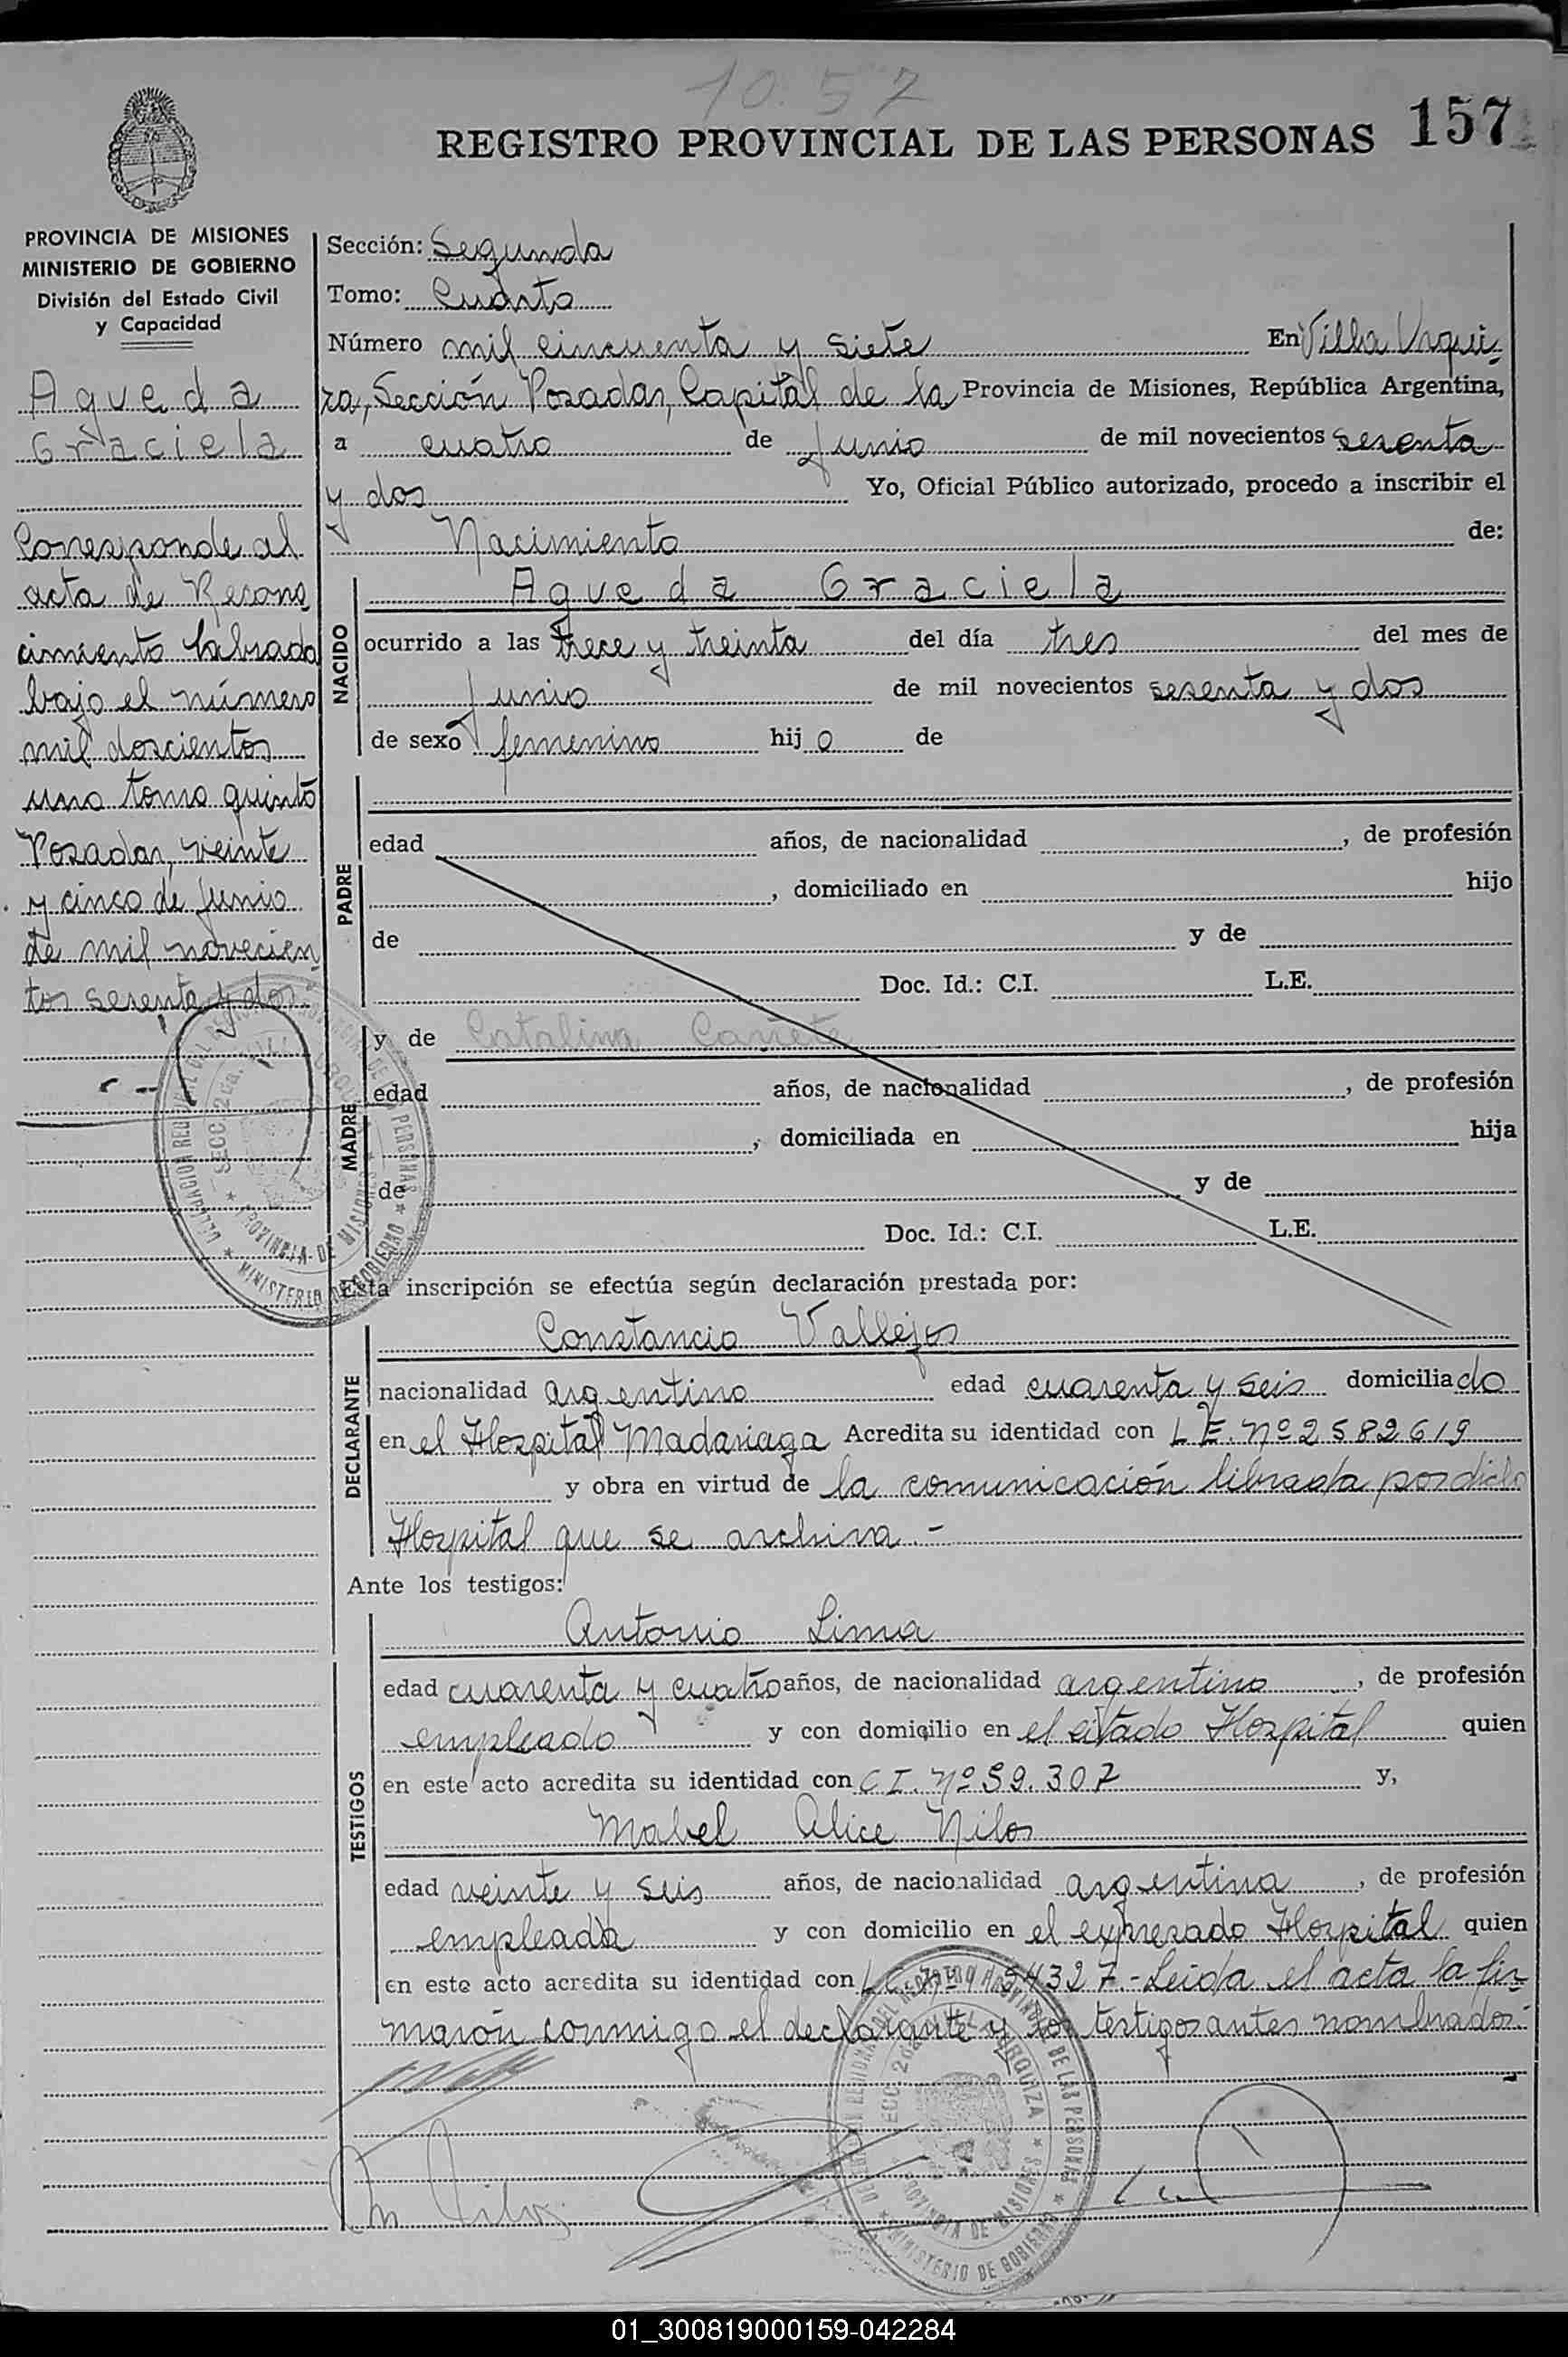 10.57
REGISTRO PROVINCIAL DE LAS PERSONAS 157
PROVINCIA DE MISIONES
MINISTERIO DE GOBIERNO
División del Estado Civil
y Capacidad
Agueda
Graciela
Corresponde al
acta de Recono
cimiento labrada
bajo el número
mil doscientos
uno tomo quinto
Posadas, veinte
y cinco de Junio
de mil novecien
tos sesenta y dos.
Sección: Segunda
Tomo: Cuarto
Número mil cincuenta y siete En Villa Urqui-
za, Sección Posadas, Capital de la Provincia de Misiones, República Argentina,
a cuatro de Junio de mil novecientos sesenta
y dos Yo, Oficial Público autorizado, procedo a inscribir el
Nacimiento de:
NACIDO
Agueda Graciela
ocurrido a las trece y treinta del día tres del mes de
Junio de mil novecientos sesenta y dos
de sexo femenino hij o de
PADRE
edad años, de nacionalidad , de profesión
, domiciliado en hijo
de y de
Doc. Id.: C.I. L.E.
MADRE
y de Catalina Cañete
edad años, de nacionalidad , de profesión
, domiciliada en hija
de y de
Doc. Id.: C.I. L.E.
Esta inscripción se efectúa según declaración prestada por:
DECLARANTE
Constancio Vallejos
nacionalidad argentino edad cuarenta y seis domiciliado
en el Hospital Madariaga Acredita su identidad con L.E. Nº 2582619
y obra en virtud de la comunicación librada por dicho
Hospital que se archiva.-
Ante los testigos:
TESTIGOS
Antonio Lima
edad cuarenta y cuatro años, de nacionalidad argentino , de profesión
empleado y con domicilio en el citado Hospital quien
en este acto acredita su identidad con C.I. Nº 59.307 y,
Mabel Alice Nilos
edad veinte y seis años, de nacionalidad argentina , de profesión
empleada y con domicilio en el expresado Hospital quien
en este acto acredita su identidad con L.C. 54327.- Leida el acta la fir-
maron conmigo el declarante y los testigos antes nombrados.-
DELEGACION REGIONAL DEL REGISTRO PROVINCIAL DE LAS PERSONAS
SECC. 2da. VILLA URQUIZA
PROVINCIA DE MISIONES
MINISTERIO DE GOBIERNO
01_300819000159-042284